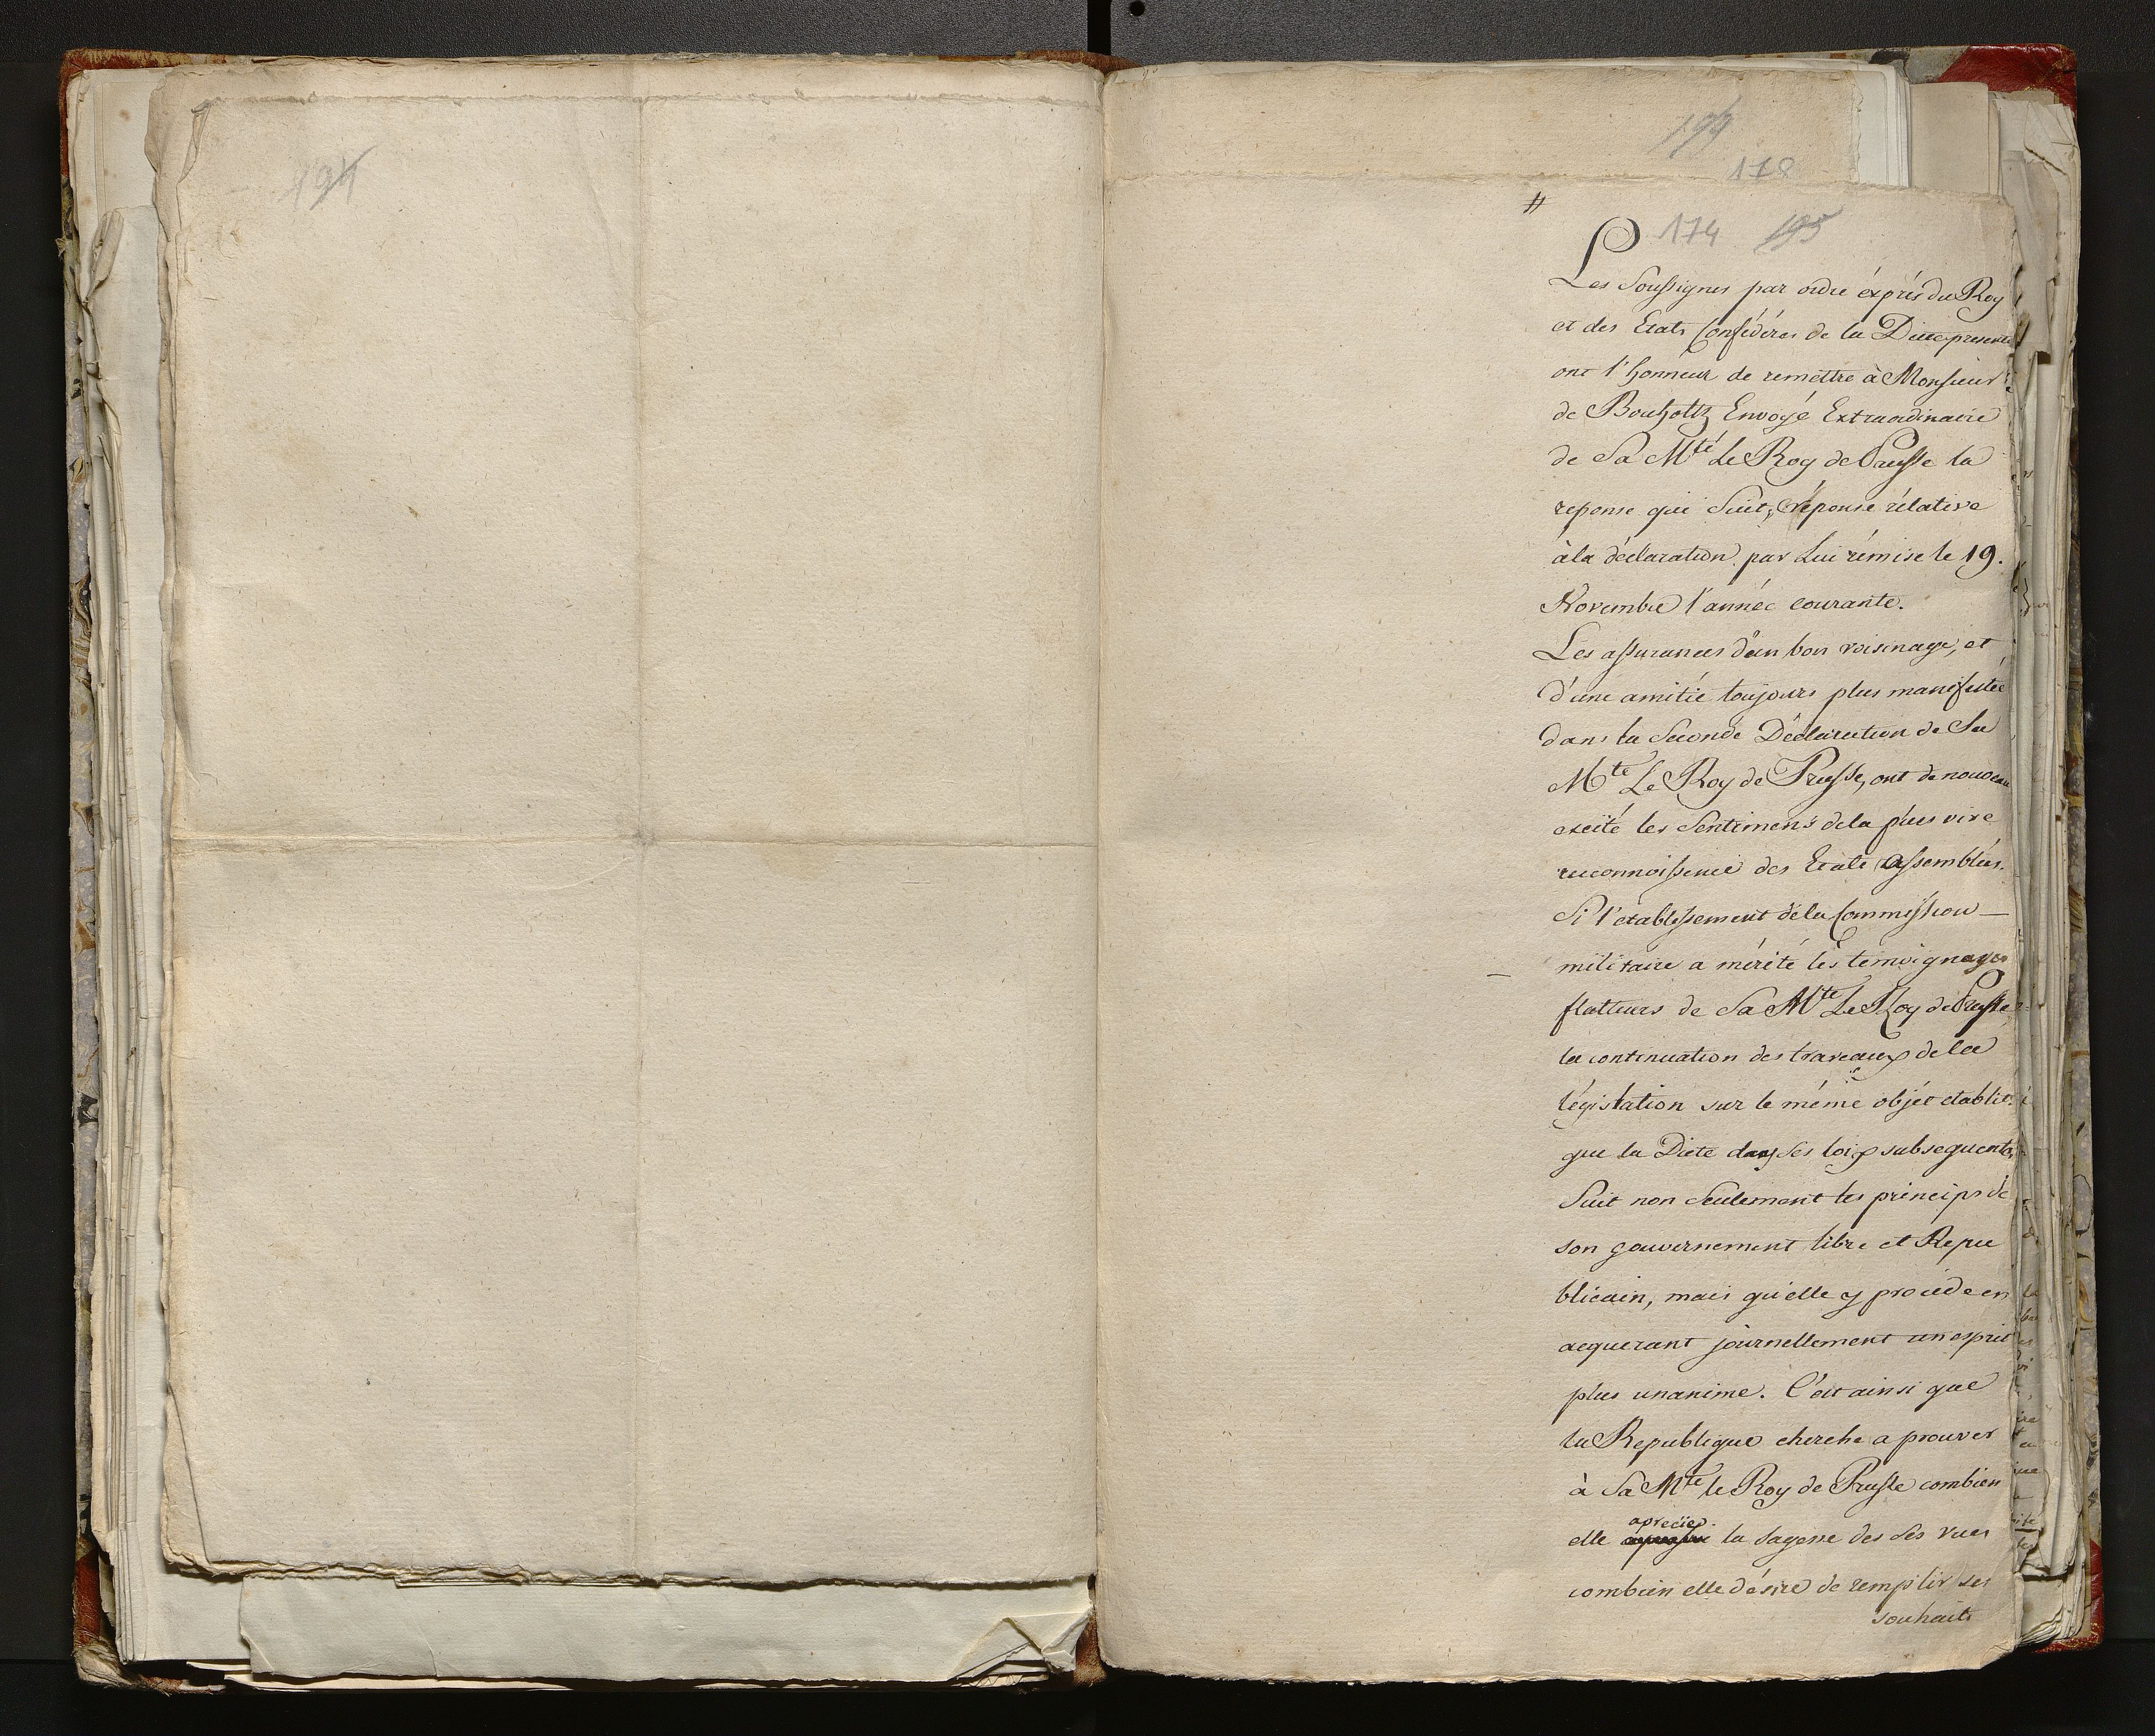 194
194
178
#
174 195
Les Soussignés par ordre éxprés du Roy
et des Etats Confédérés de la Diete presente
ont l'honneur de remettre à Monsieur
de Bouholtz Envoyé Extraordinaire
de Sa Mté Le Roy de Prusse la
reponse qui Suit, réponse rélative
à la déclaration par Lui rémise le 19.
Novembre l'année courante.
Les assurances d'un bon voisinage, et
d'une amitié toujours plus manifestée
dans la Seconde Déclaration de Sa
Mté Le Roy de Prusse, ont de nouveau
excité les Sentimens de la plus vive
reconnoissence des Etats assemblés.
Si l'etablissement de la Commission
militaire a mérité les témoignages
flatteurs de Sa Mté Le Roy de Prusse
la continuation des traveaux de la
législation sur le même objét etablit
que la Diete dans Ses loix subsequentes
Suit non Seulement les princips de
son gouvernement libre et Repu
blicain, mais qu'elle y procéde en
aequerant journellement un esprit
plus unanime. C'est ainsi que
la Republique cherche a prouver
à Sa Mté le Roy de Prusse combien
apreciée
elle la Sagesse des Ses vues
combien elle désire de remplir ses
souhaits